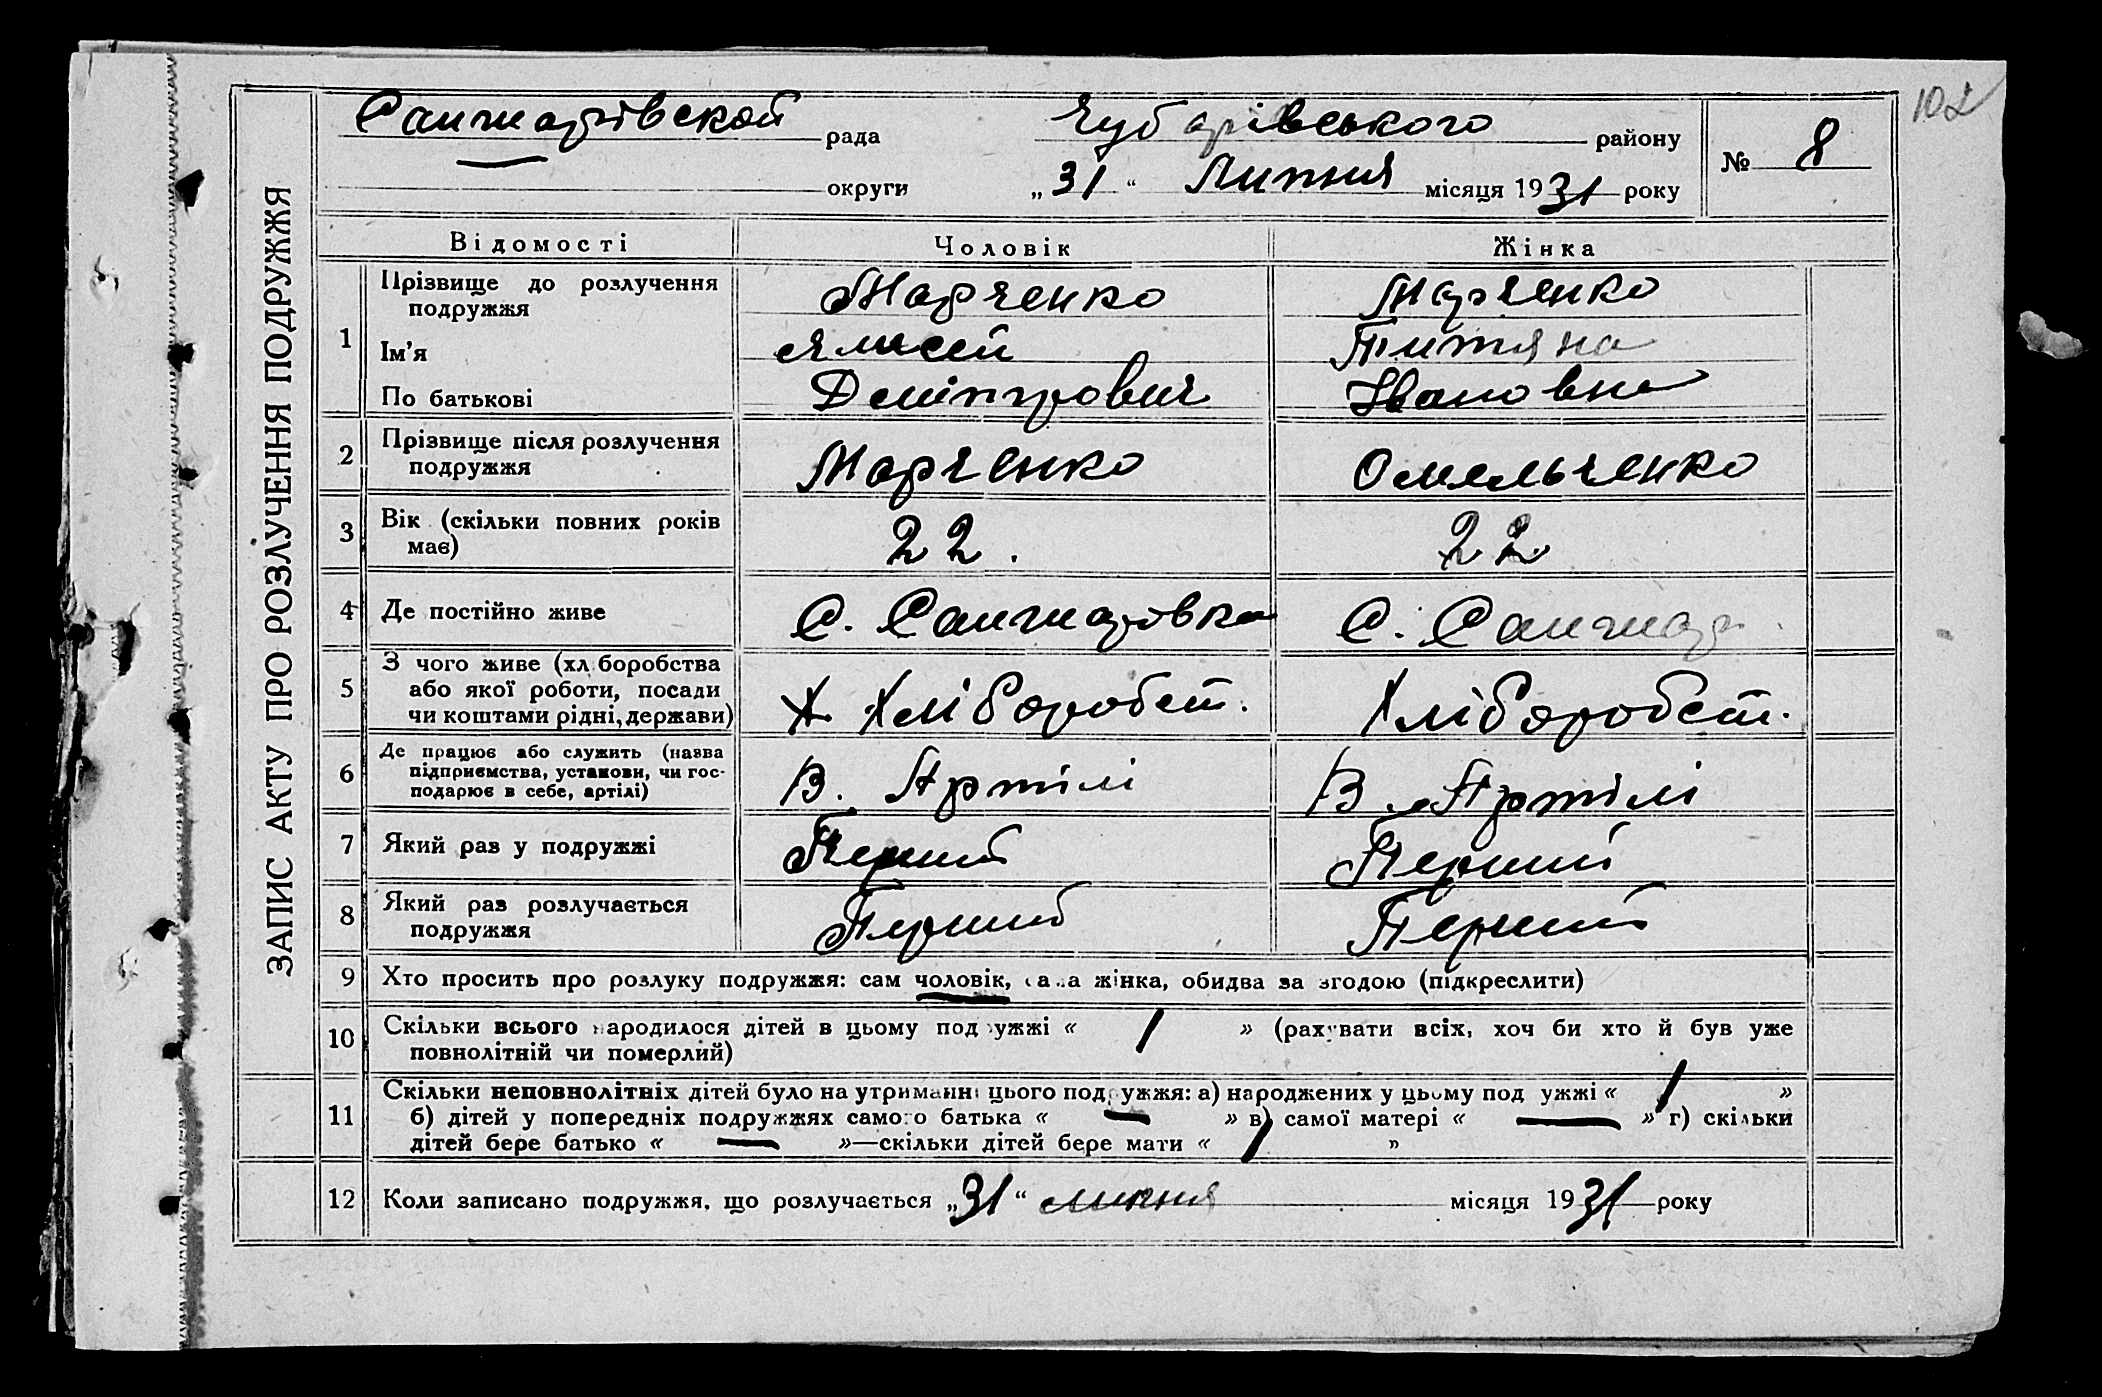 102
ЗАПИС АКТУ ПРО РОЗЛУЧЕННЯ ПОДРУЖЖЯ
Санжарівской рада Чубарівського району № 8
округи „31“ Липня місяця 1931 року
Відомості Чоловік Жінка
1 Прізвище до розлучення подружжя Марченко Марченко
Ім'я Титяна
По батькові Дмітрович Івановна
2 Прізвище після розлучення подружжя Марченко Омельченко
3 Вік (скільки повних років має) 22. 22
4 Де постійно живе С. Санжаровка С. Санжар.
5 З чого живе (хліборобства або якої роботи, посади чи коштами рідні, держави) Х Хліборобст. Хліборобст.
6 Де працює або служить (назва підприємства, установи, чи господарює в себе, артілі) В. Артілі В. Артілі
7 Який раз у подружжі Перший Перший
8 Який раз розлучається подружжя Перший Перший
9 Хто просить про розлуку подружжя: сам чоловік, сама жінка, обидва за згодою (підкреслити)
10 Скільки всього народилося дітей в цьому подружжі « 1 » (рахувати всіх, хоч би хто й був уже
повнолітній чи померлий)
11 Скільки неповнолітніх дітей було на утриманні цього подружжя: а) народжених у цьому подружжі « 1 »
б) дітей у попередніх подружжях самого батька « — » в) самої матері « — » г) скільки
дітей бере батько « — »—скільки дітей бере мати « 1 »
12 Коли записано подружжя, що розлучається „31“ липня місяця 1931 року